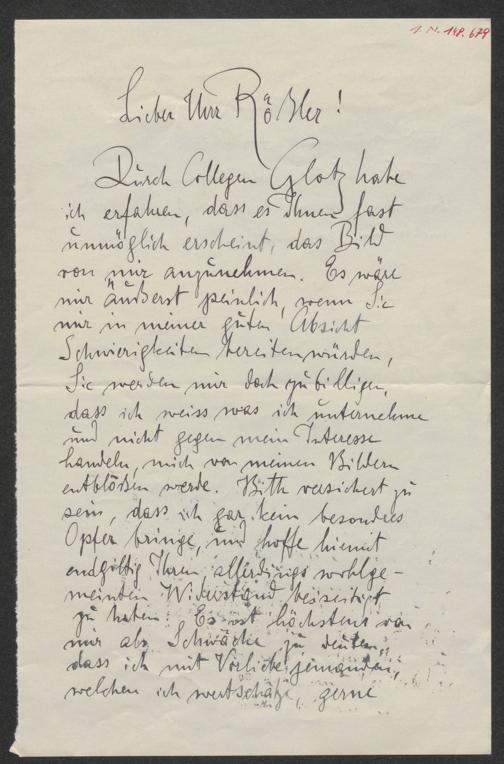 I. N. 148.679
Lieber Herr Rößler!
Durch Collegen Glotz habe
ich erfahren, dass es Ihnen fast
unmöglich erscheint, das Bild
von mir anzunehmen. Es wäre
mir äußerst peinlich, wenn Sie
mir in meiner guten Absicht
Schwierigkeiten bereiten würden,
Sie werden mir doch zubilligen,
dass ich weiss was ich unternehme
und nicht gegen mein Interesse
handeln, mich von meinen Bildern
entblößen werde. Bitte versichert zu
sein, dass ich gar kein besonderes
Opfer bringe, und hoffe hiemit
endgiltig Ihren allerdings wohlge-
meinten Widerstand beiseitigt
zu haben. Es ist höchstens von
mir als Schwäche zu deuten,
dass ich mit Vorliebe jemanden,
welchen ich wertschätze, gerne